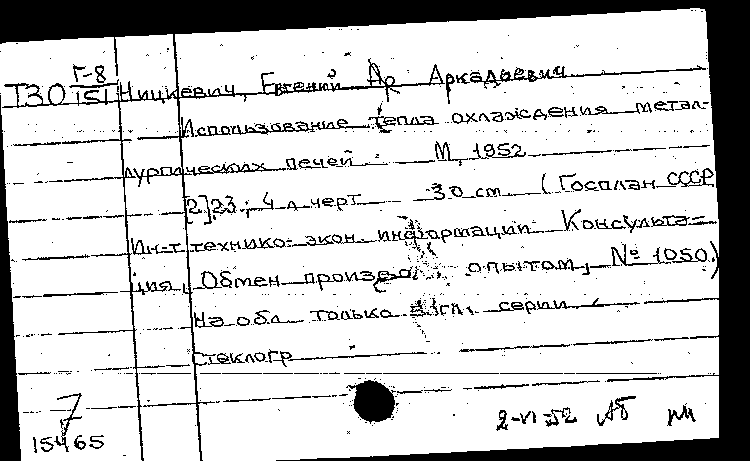 Г-8
ТЗО 151 Ницкевич, Евгений Ар Аркадьевич
Использование тепла охлаждения метал-
лургических печей. М, 1952
[2]23; 4 л черт 30 cm (Госплан СССР
Ин-т технико-экон. информации Консульта-
ция, Обмен произв. опытом, № 1050.)
На обл только загл. серии
Стеклогр
7
15465
2-VI-52 АБ